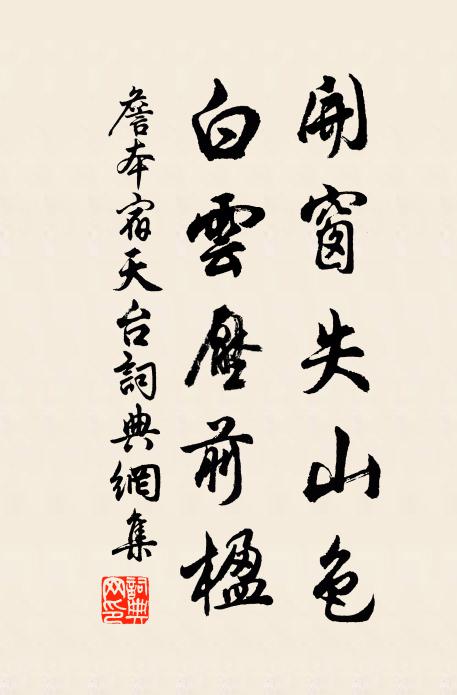 開窗失山色
白雲壓前楹
詹本宿天台詞典網集
詞典
网印